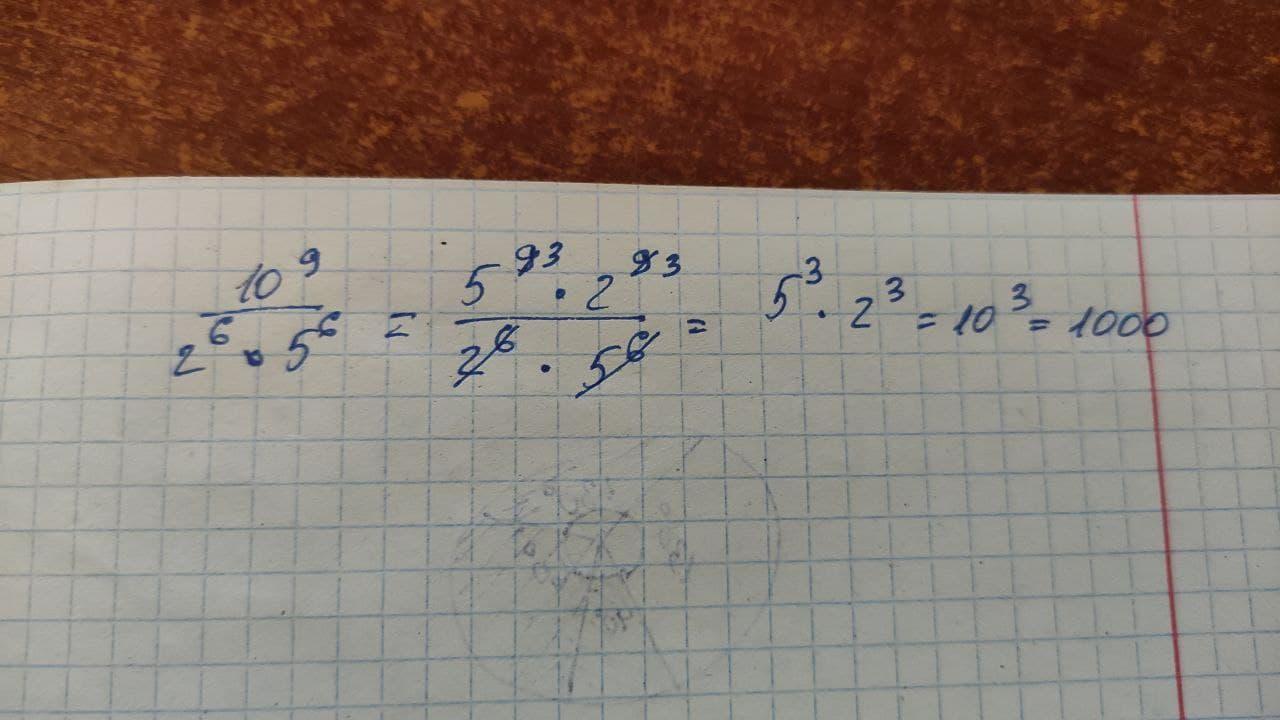 10⁹ / (2⁶ · 5⁶) = (5⁹ ³ · 2⁹ ³) / (2⁶ · 5⁶) = 5³ · 2³ = 10³ = 1000